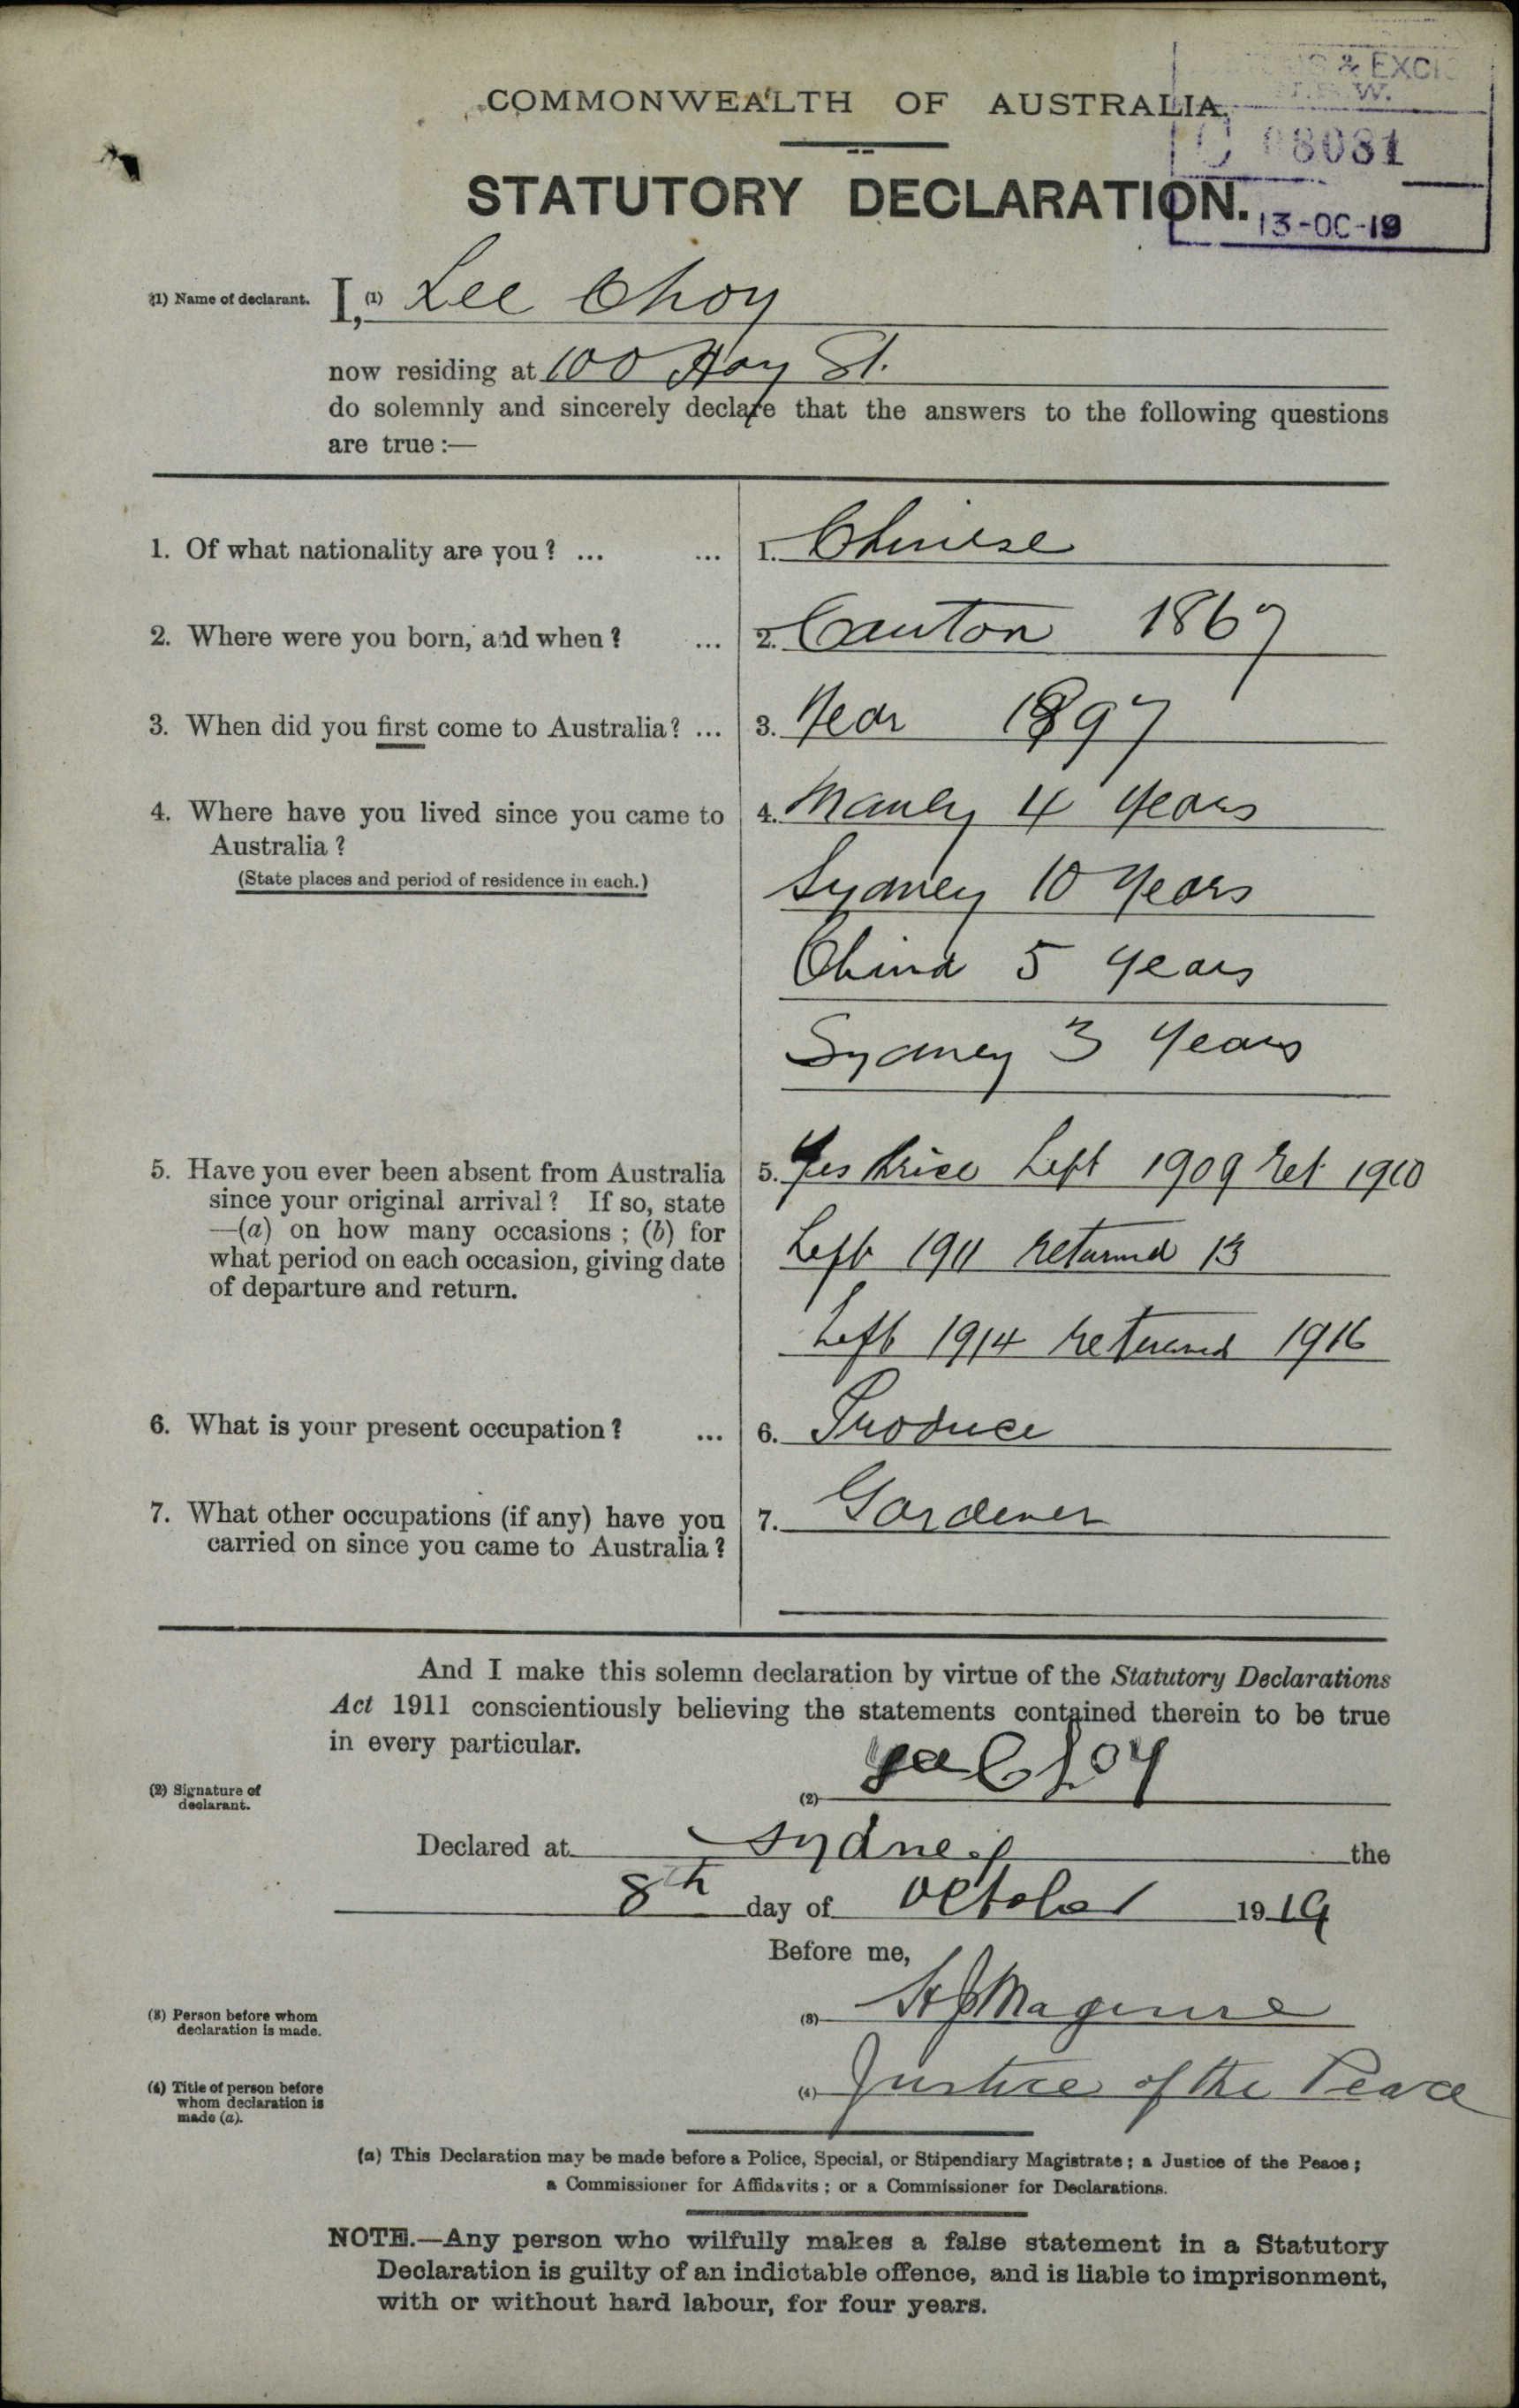 COMMONWEALTH OF AUSTRALIA.
& EXCI
W.
C 08081
STATUTORY DECLARATION.
13-OC-19
(1) Name of declarant. I, (1) Lee Choy
now residing at 100 Hay St.
do solemnly and sincerely declare that the answers to the following questions
are true :—
1. Of what nationality are you ? ... ... 1. Chinese
2. Where were you born, and when ? ... 2. Canton 1867
3. When did you first come to Australia? ... 3. Year 1897
4. Where have you lived since you came to 4. Manly 4 years
Australia ?
(State places and period of residence in each.) Sydney 10 Years
China 5 years
Sydney 3 Years
5. Have you ever been absent from Australia 5. Yes thrice Left 1909 ret 1910
since your original arrival ? If so, state
—(a) on how many occasions ; (b) for Left 1911 returned 13
what period on each occasion, giving date
of departure and return.
Left 1914 returned 1916
6. What is your present occupation ? ... 6. Produce
7. What other occupations (if any) have you 7. Gardener
carried on since you came to Australia ?
And I make this solemn declaration by virtue of the Statutory Declarations
Act 1911 conscientiously believing the statements contained therein to be true
in every particular.
(2) Signature of
declarant.
(2) Choy
Declared at Sydney the
8th day of October 1919
Before me,
(3) Person before whom
declaration is made.
(3) Maguire
(4) Title of person before
whom declaration is
made (a).
(4) Justice of the Peace
(a) This Declaration may be made before a Police, Special, or Stipendiary Magistrate ; a Justice of the Peace ;
a Commissioner for Affidavits ; or a Commissioner for Declarations.
NOTE.—Any person who wilfully makes a false statement in a Statutory
Declaration is guilty of an indictable offence, and is liable to imprisonment,
with or without hard labour, for four years.